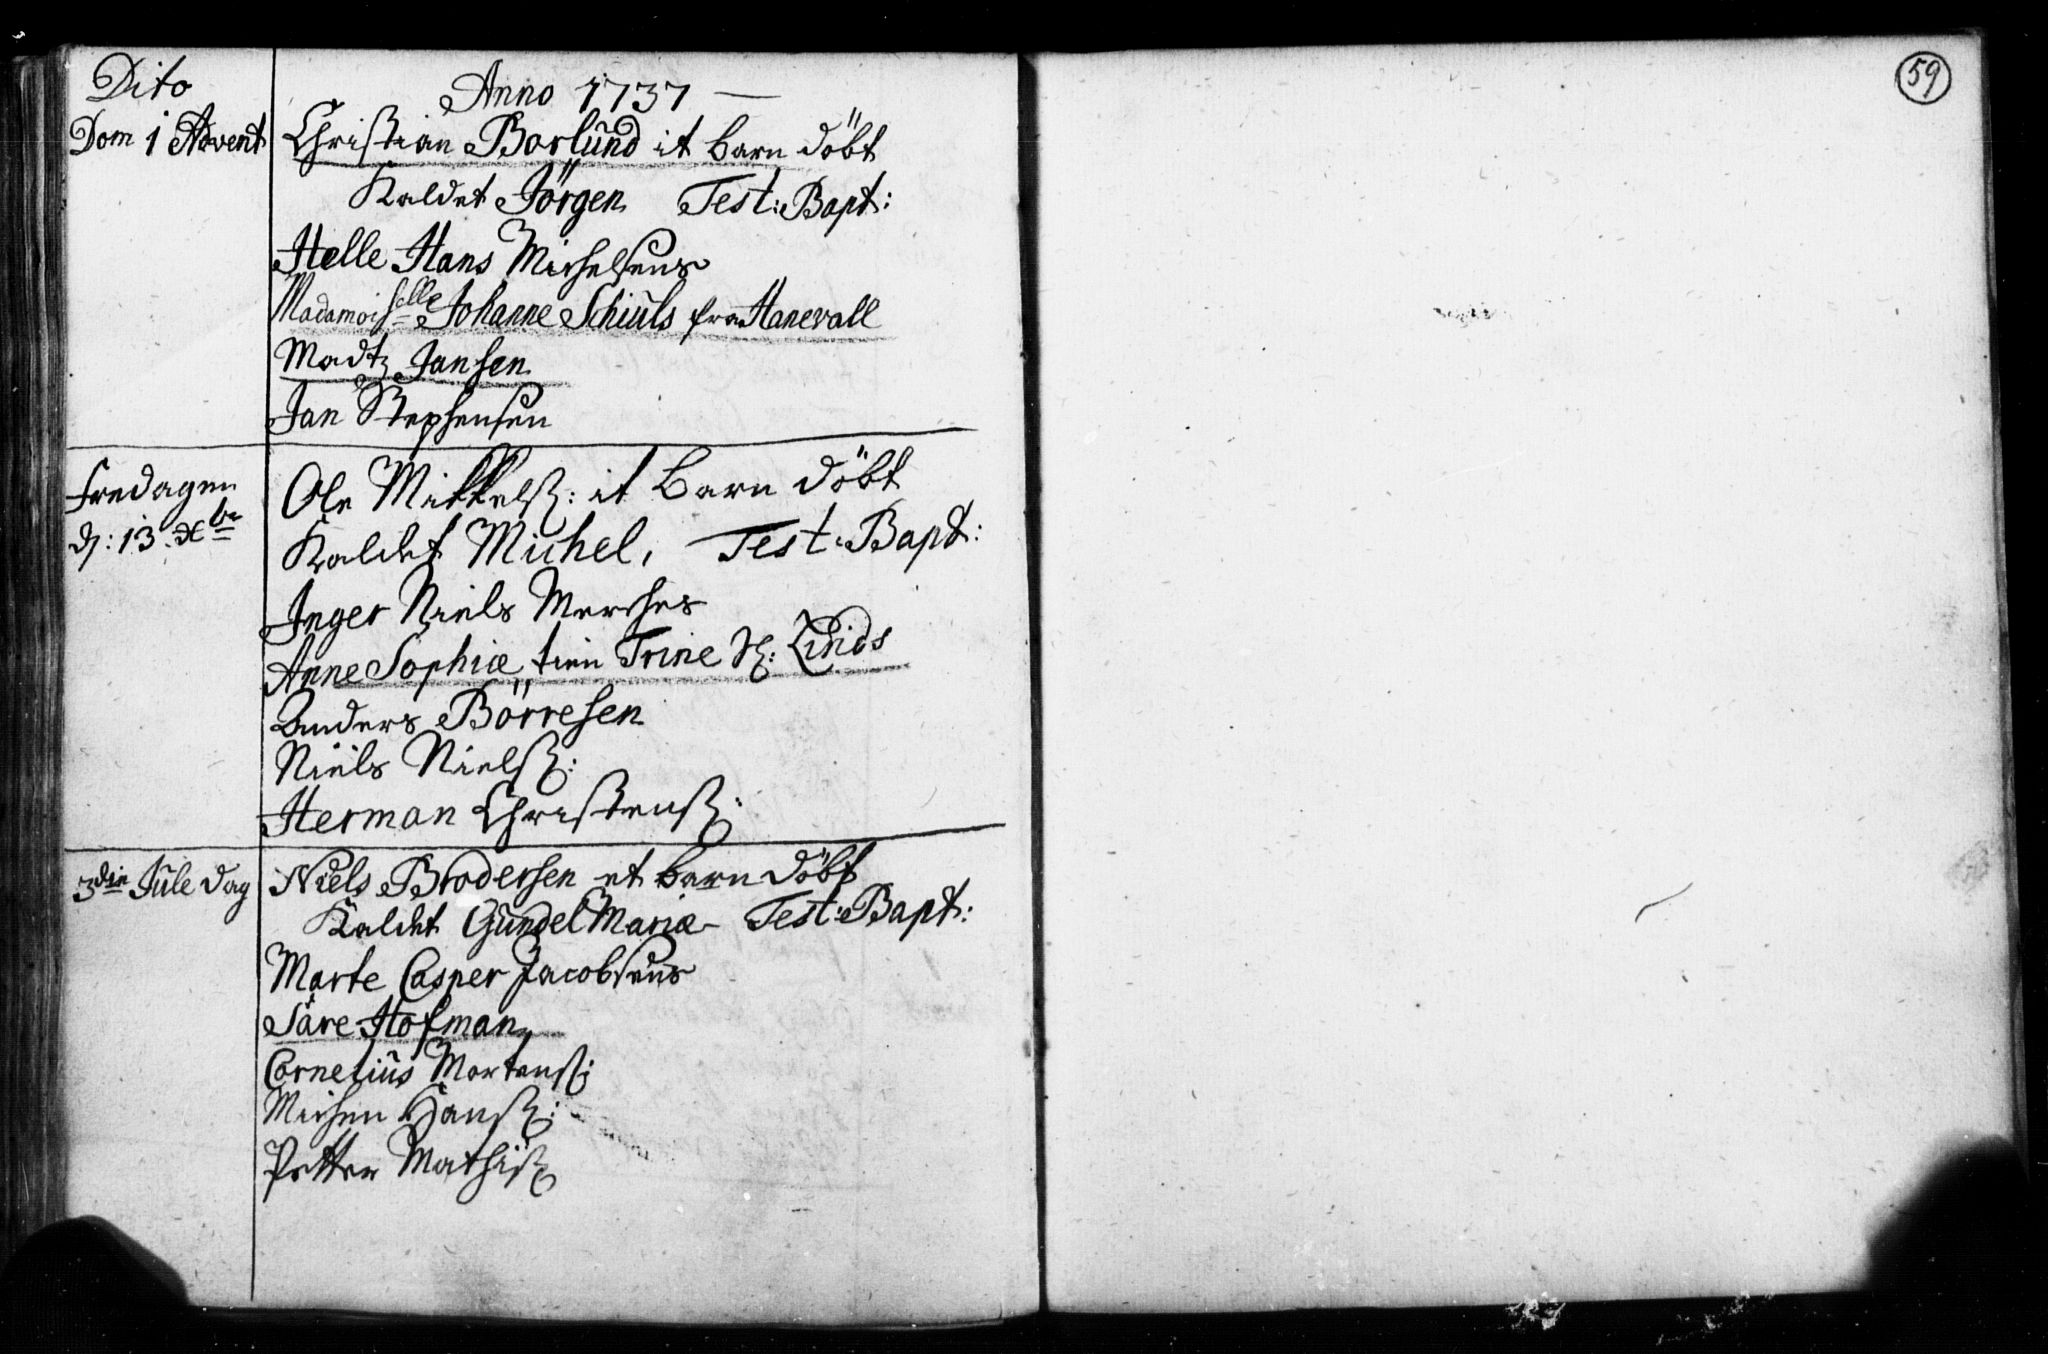 59
Anno 1737
Dito
Dom 1 Advent
Christian Borlund it barn döbt
Kaldet Jörgen Test: Bapt:
Helle Hans Michelsens
Madamoiselle Johanne Schiuls fra Hanevall
Madtz Jansen
Jan Stephensen
Fredagen
d: 13. Xbr
Ole Mikkelß: it barn döbt
Kaldet Michel, Test: Bapt:
Inger Niels Merches
Anne Sophie, tien Trine Linds
Anders Börresen
Niels Nielß:
Herman Christenß:
3die Jule dag
Niels Brodersen et barn döbt
Kaldet Gundel Maria Test: Bapt:
Marte Casper Jacobsens
Sare Hofman
Cornelius Mortenß:
Michen Hanß:
Petter Mathiß